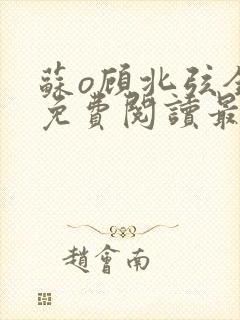 蘇o顧北弦全
免費閱讀最
趙會南